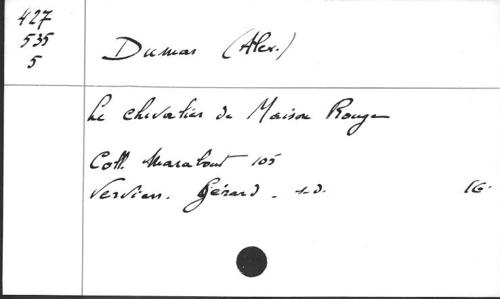 427
535
5
Dumas (Alex.)
Le chevalier de Maison Rouge
Coll. Marabout 105
Verviers. Gérard. s.d. 16°